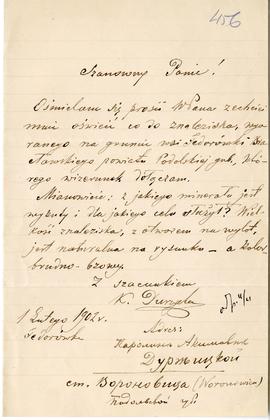 456
Szanowny Panie!
Ośmielam się prosić WPana zechcieć
mnie oświecić co do znaleziska, wyo-
ranego na gruncie wsi Fedorówki Bra-
cławskiego powiatu Podolskiej gub., któ-
rego wizerunek dołączam.
Mianowicie: z jakiego minerału jest
wyżuty i dla jakiego celu służył? Wiel-
kość znaleziska, z otworem na wylot,
jest naturalna na rysunku – a kolor
brudno-bzowy.
Z szacunkiem
K.
1 Lutego 1902 r.
Fedorówka
Adres:
Каролина Акимовна
ст. Вороновица (Woronowica)
Подольской губ.